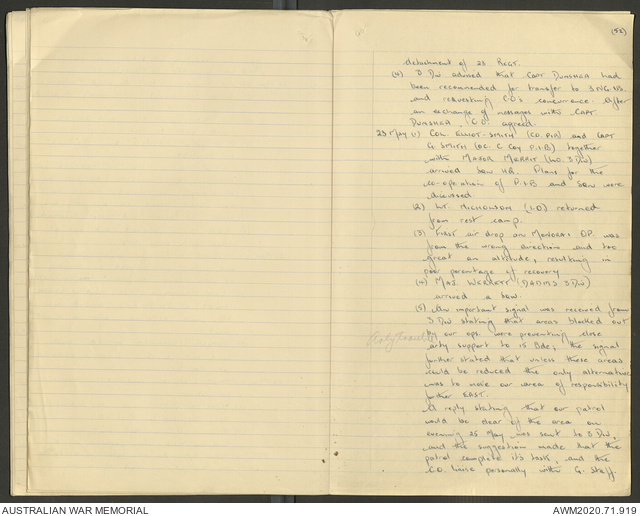 (52)
detachment of 23 REGT.
(4) 3 Div advised that CAPT DUNSHEA had
been recommended for transfer to 3 N.G.I.B.
and requesting CO's concurrence. After
an exchange of messages with CAPT
DUNSHEA, C.O. agreed.
23 May (1) COL. ELLIOT-SMITH (CO. P.I.R) and CAPT
G. SMITH (OC. C Coy P.I.B) together
with MAJOR MERRITT (L.O. 3 Div)
arrived Sqn HQ. Plans for the
co-operation of P.I.B and Sqn were
discussed.
(2) LT. NICHOLSON (I.O) returned
from rest camp.
(3) FIRST air drop on MONORAI O.P. was
from the wrong direction and too
great an altitude, resulting in
poor percentage of recovery
(4) MAJ. WEBBETT (DADMS 3 Div)
arrived a Sqn.
(5) An important signal was received from
3 Div stating that areas blocked out
by our ops. were preventing close
arty support to 15 Bde; the signal
further stated that unless these areas
could be reduced the only alternative
was to move our area of responsibility
further EAST.
A reply stating that our patrol
would be clear of the area on
evening 25 May was sent to 3 Div,
and the suggestion made that the
patrol complete its task, and the
C.O. liaise personally with G. Staff.
AUSTRALIAN WAR MEMORIAL
AWM2020.71.919